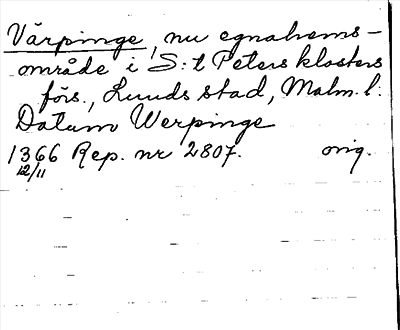 Värpinge, nu egnahems-
område i S:t Peters klosters
förs., Lunds stad, Malm. l.
Datum Werpinge
1366 Rep. nr 2807. orig.
12/11